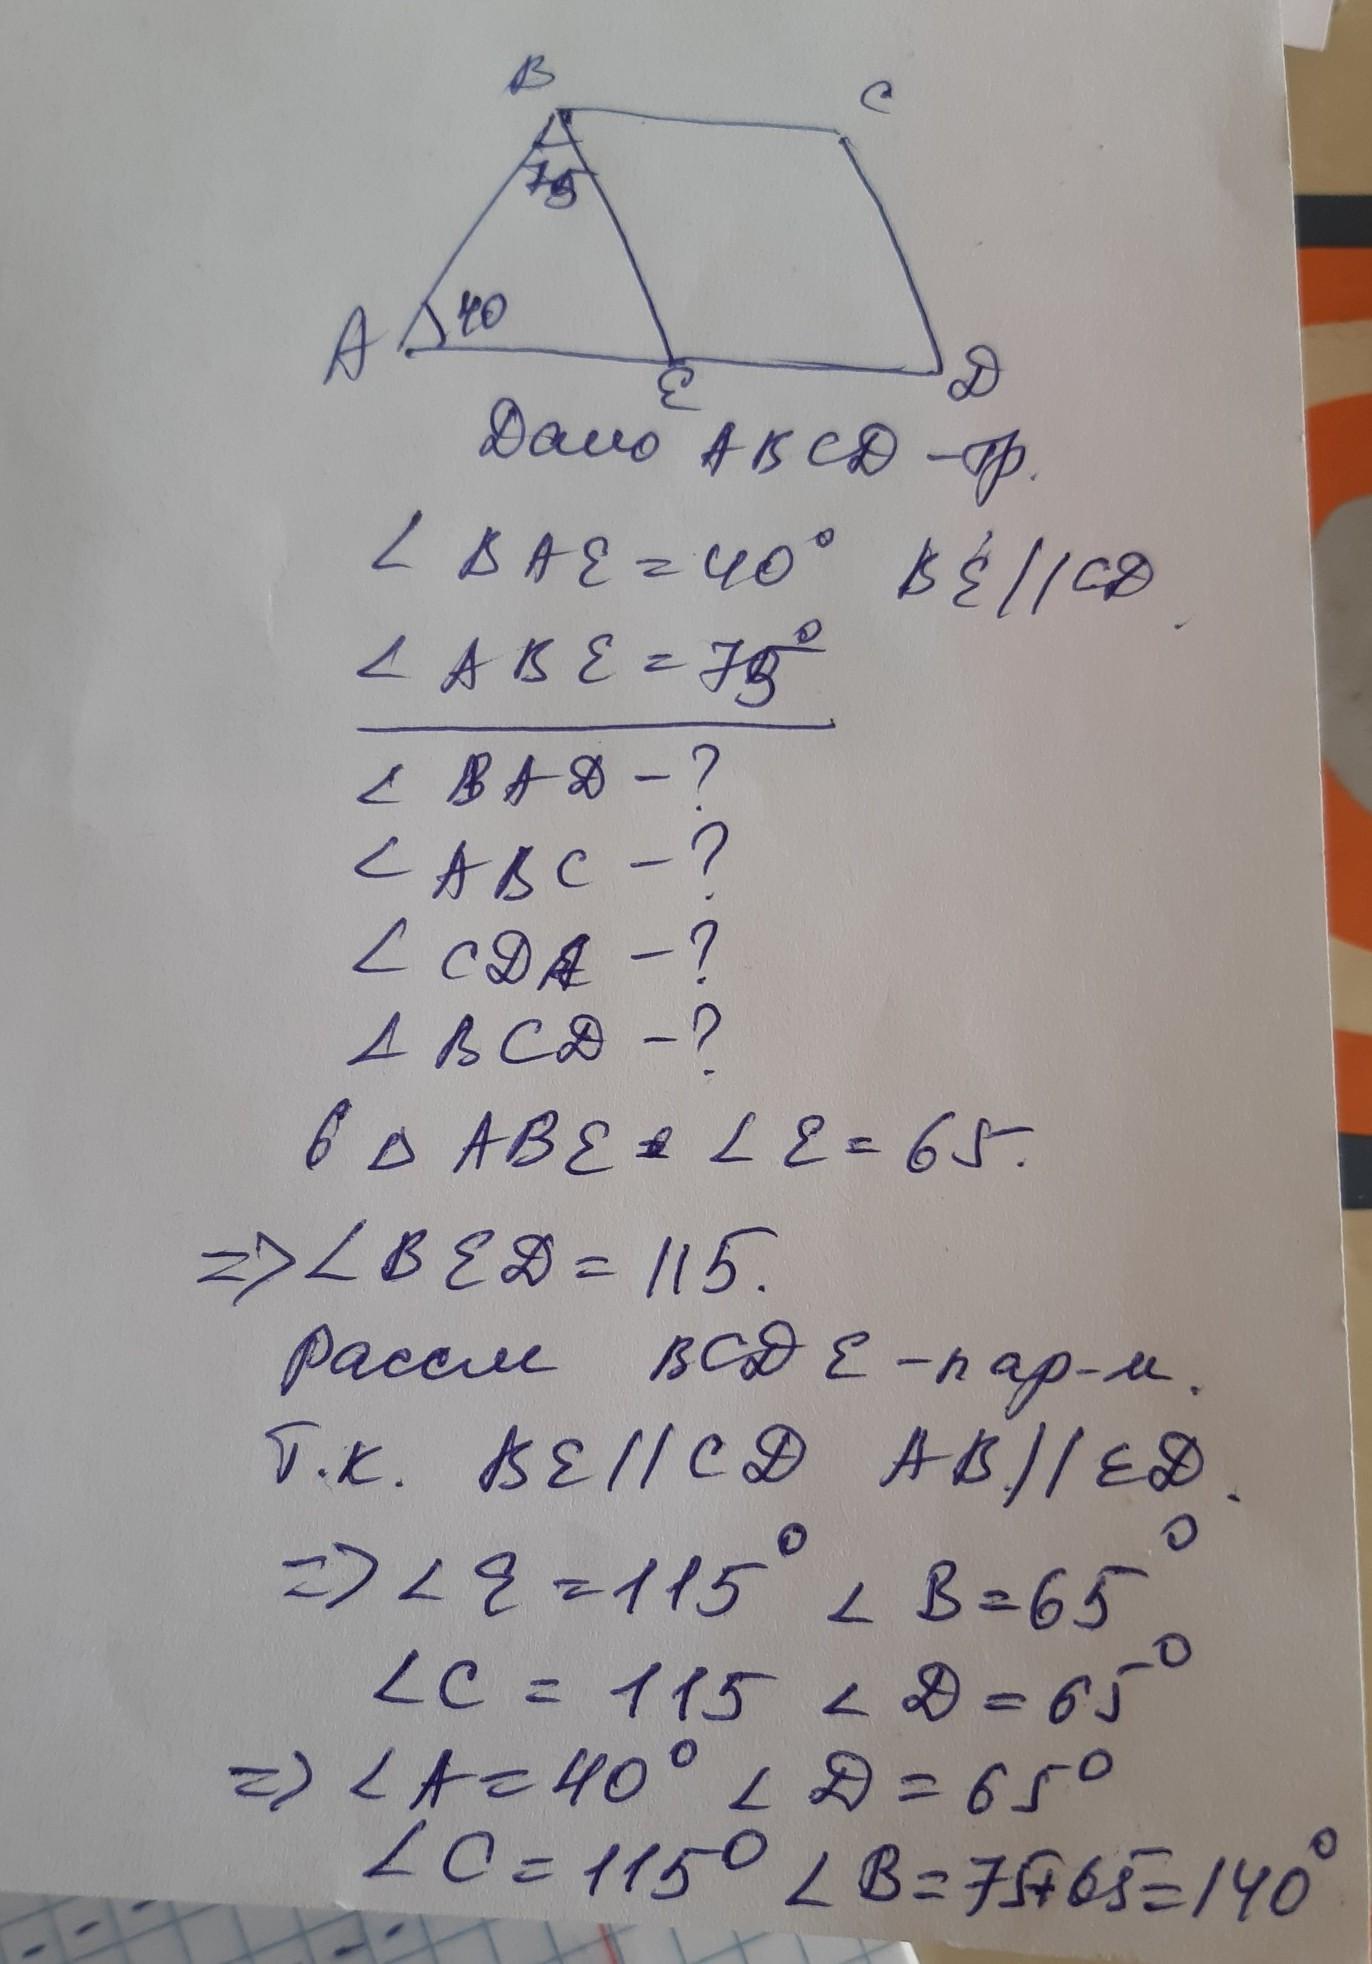 B
C
75
A
40
E
D
Дано ABCD - тр.
∠ BAE = 40° BE//CD
∠ ABE = 75°
∠ BAD - ?
∠ ABC - ?
∠ CDA - ?
∠ BCD - ?
В △ ABE ∠ E = 65.
=> ∠ BED = 115.
Рассм BCDE - пар-м.
Т.к. BE//CD AB//ED.
=> ∠ E = 115° ∠ B = 65°
∠C = 115 ∠ D = 65°
=> ∠ A = 40° ∠ D = 65°
∠ C = 115° ∠ B = 75+65 = 140°